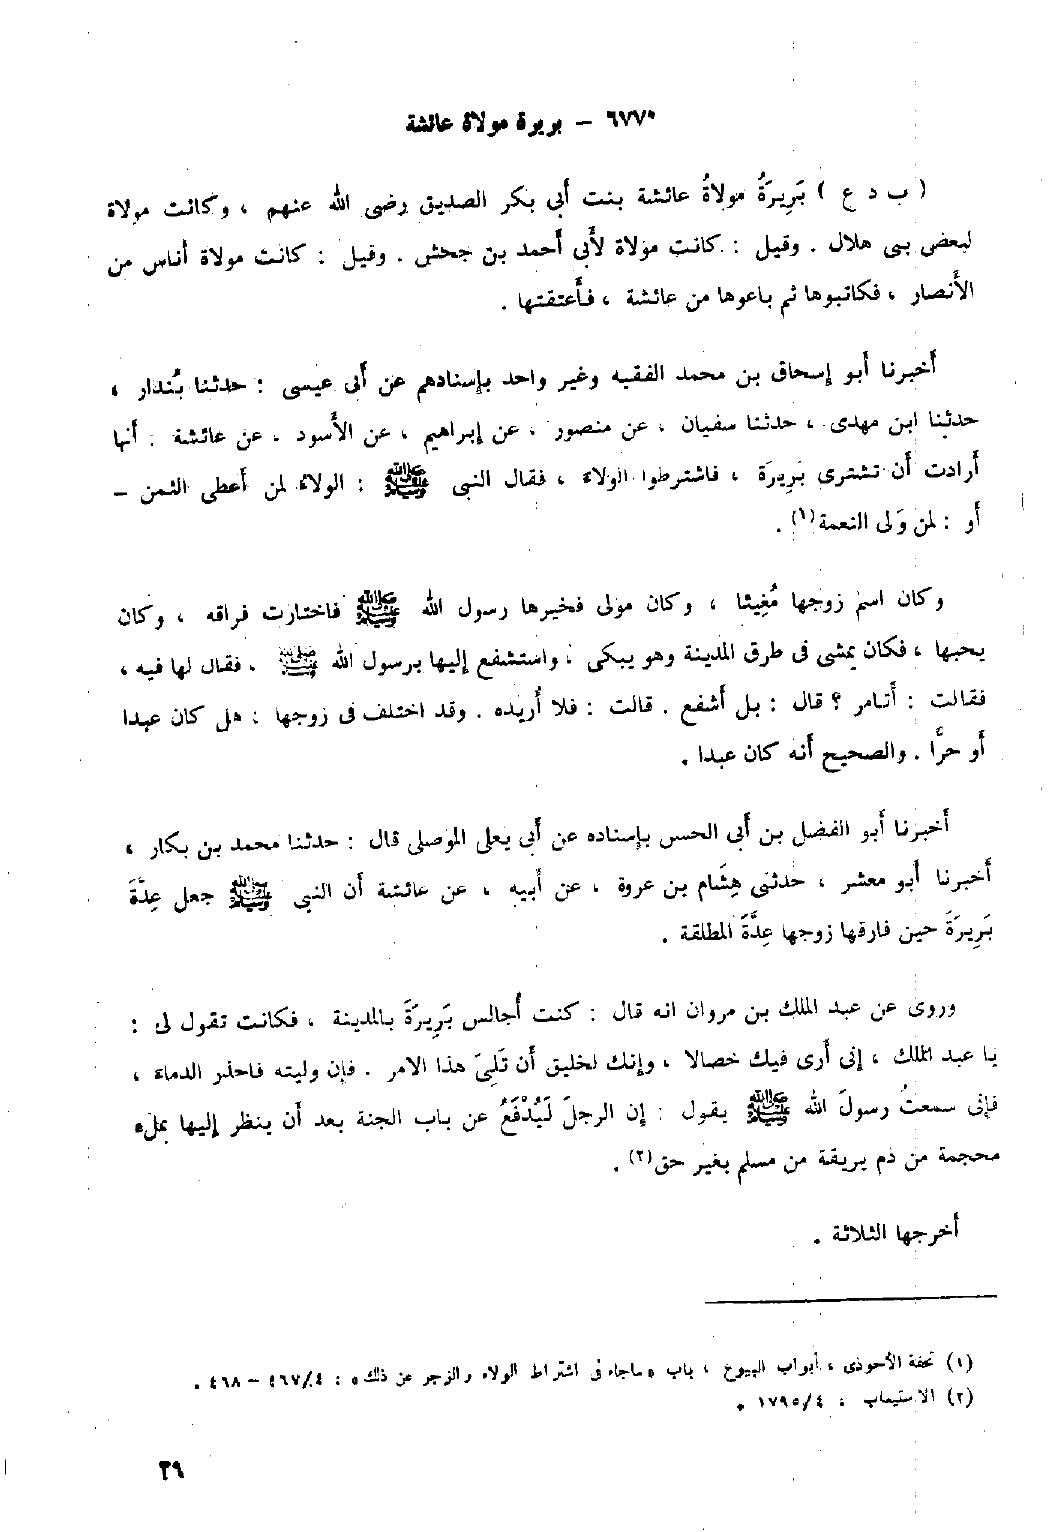 ٦٧٧٠ – بريرة مولاة عائشة
( ب د ع ) بَرِيرَةُ مولاةُ عائشة بنت أبى بكر الصديق رضى الله عنهم ، وكانت مولاة
لبعض بنى هلال . وقيل : كانت مولاة لأَبى أَحمد بن جحش . وقيل : كانت مولاة أناس من
الأَنصار ، فكاتبوها ثم باعوها من عائشة ، فأَعتقتها .
أَخبرنا أَبو إسحاق بن محمد الفقيه وغير واحد بإسنادهم عن أَبى عيسى : حدثنا بُندار ،
حدثنا ابن مهدى ، حدثنا سفيان ، عن منصور ، عن إبراهيم ، عن الأَسود ، عن عائشة : أَنها
أَرادت أَن تشترى بَرِيرَة ، فاشترطوا الولاءَ ، فقال النبى ﷺ : الولاءُ لمن أَعطى الثمن –
أَو : لمن وَلى النعمة(١) .
وكان اسم زوجها مُغِيثا ، وكان مولى فخيرها رسول الله ﷺ فاختارت فراقه ، وكان
يحبها ، فكان يمشى فى طرق المدينة وهو يبكى ، واستشفع إليها برسول الله ﷺ ، فقال لها فيه ،
فقالت : أَتأمر ؟ قال : بل أَشفع . قالت : فلا أُريده . وقد اختلف فى زوجها : هل كان عبدا
أَو حرًّا . والصحيح أَنه كان عبدا .
أَخبرنا أَبو الفضل بن أَبى الحسن بإسناده عن أَبى يعلى الموصلى قال : حدثنا محمد بن بكار ،
أَخبرنا أَبو معشر ، حدثنى هِشَام بن عروة ، عن أَبيه ، عن عائشة أَن النبى ﷺ جعل عِدَّةَ
بَرِيرَةَ حين فارقها زوجها عِدَّةَ المطلقة .
وروى عن عبد الملك بن مروان انه قال : كنت أُجالس بَرِيرَةَ بالمدينة ، فكانت تقول لى :
يا عبد الملك ، إنى أَرى فيك خصالا ، وإنك لخليق أَن تَلِىَ هذا الامر . فإن وليته فاحذر الدماءَ ،
فإنى سمعتُ رسولَ الله ﷺ يقول : إن الرجلَ لَيُدْفَعُ عن باب الجنة بعد أَن ينظر إليها بملء
محجمة من دم يريقة من مسلم بغير حق(٢) .
أَخرجها الثلاثة .
(١) تحفة الأحوذى ، أبواب البيوع ، باب « ماجاء فى اشتراط الولاء والزجر عن ذلك » : ٤٦٧/٤ – ٤٦٨ .
(٢) الاستيعاب ، ١٧٩٥/٤ .
٣٩